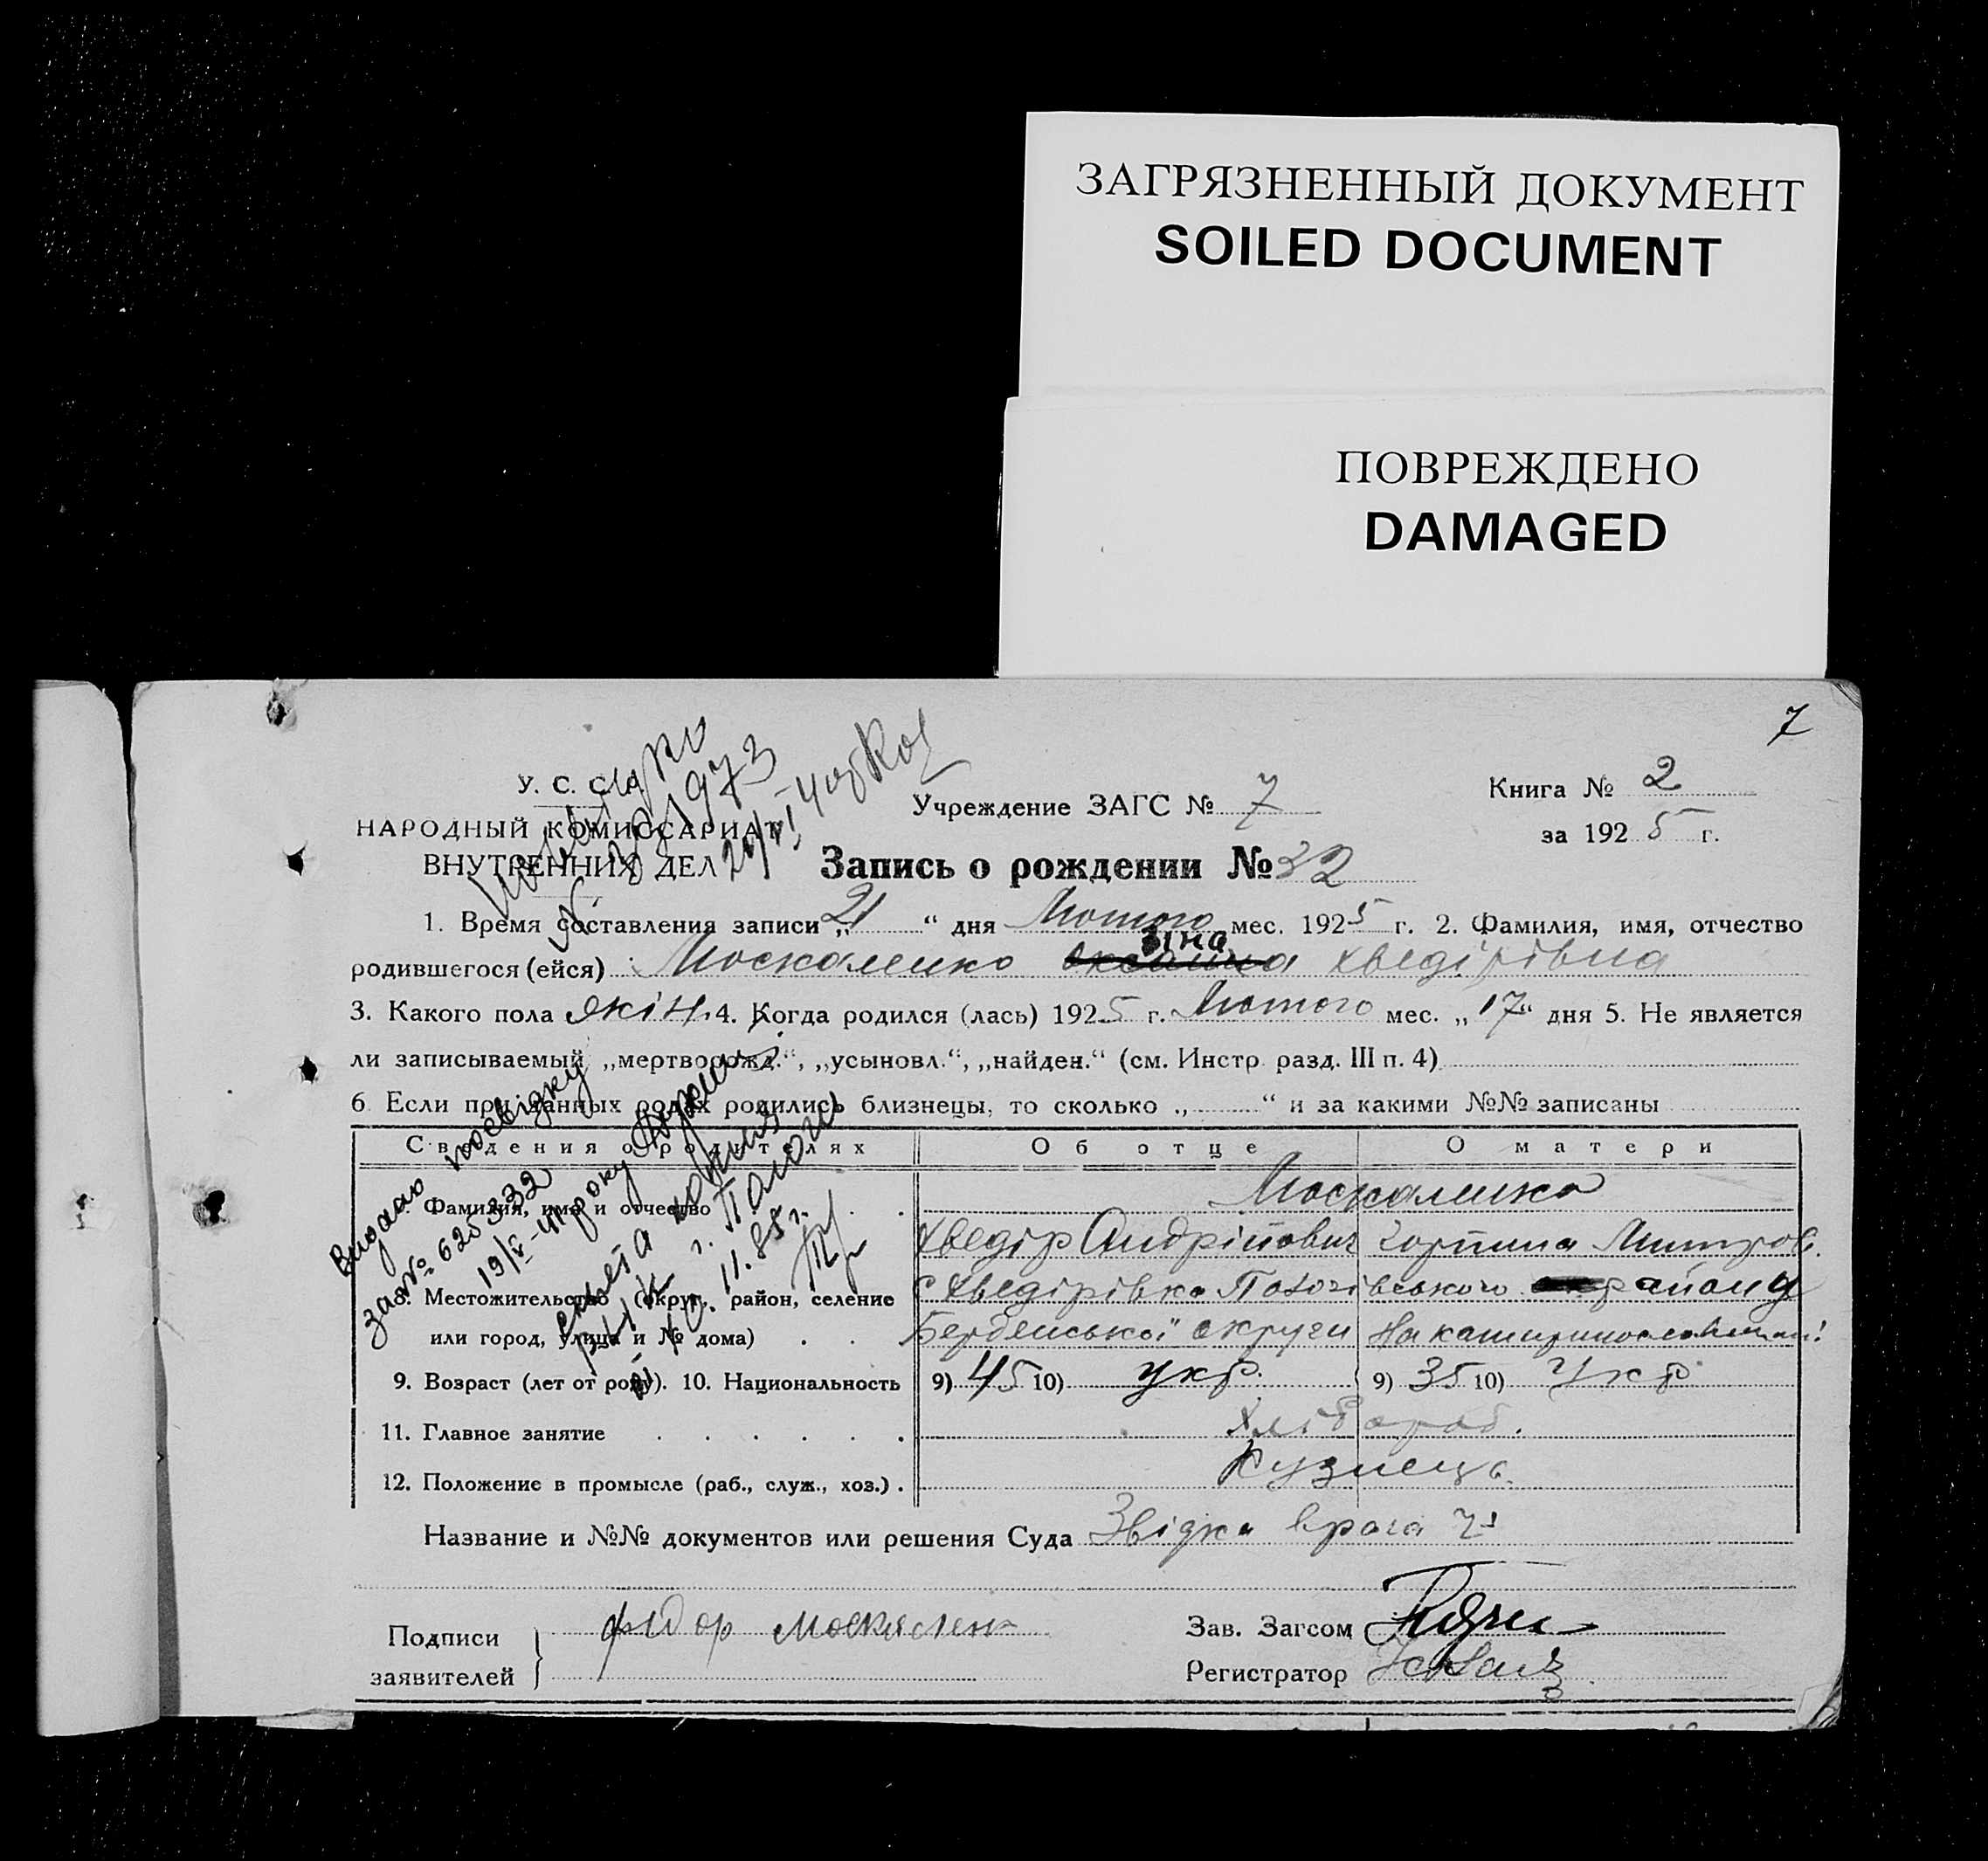 ЗАГРЯЗНЕННЫЙ ДОКУМЕНТ
SOILED DOCUMENT
ПОВРЕЖДЕНО
DAMAGED
7
У. С. С. Р.
НАРОДНЫЙ КОМИССАРИАТ
ВНУТРЕННИХ ДЕЛ
Учреждение ЗАГС № 7
Книга № 2
за 1925 г.
Запись о рождении № 32
1. Время составления записи „21“ дня Лютого мес. 1925 г. 2. Фамилия, имя, отчество
зіна
родившегося (ейся) Москаленко Оксанна Хведірівна
3. Какого пола жін. 4. Когда родился (лась) 1925 г. Лютого мес. „17“ дня 5. Не является
ли записываемый „мертворожд.“, „усыновл.“, „найден.“ (см. Инстр. разд. III п. 4)
6. Если при данных родах родились близнецы, то сколько „ “ и за какими №№ записаны
Сведения о родителях Об отце О матери
7. Фамилия, имя и отчество Москаленко
Хведір Андрійович Горпина Митров.
8. Местожительство (округ, район, селение с Хведірівка Пологівського району
или город, улица и № дома) Бердянської округи на Катеринославщині
9. Возраст (лет от роду). 10. Национальность 9) 45 10) укр. 9) 35 10) Укр
11. Главное занятие Хлібороб.
12. Положение в промысле (раб., служ., хоз.) Кузнець
Название и №№ документов или решения Суда Звідка врача
Подписи
заявителей
фидор москален
Зав. Загсом
Регистратор
Видано посвідку
зая № 625332
19/V-41 року
г. Пологи
11.85г.
1973